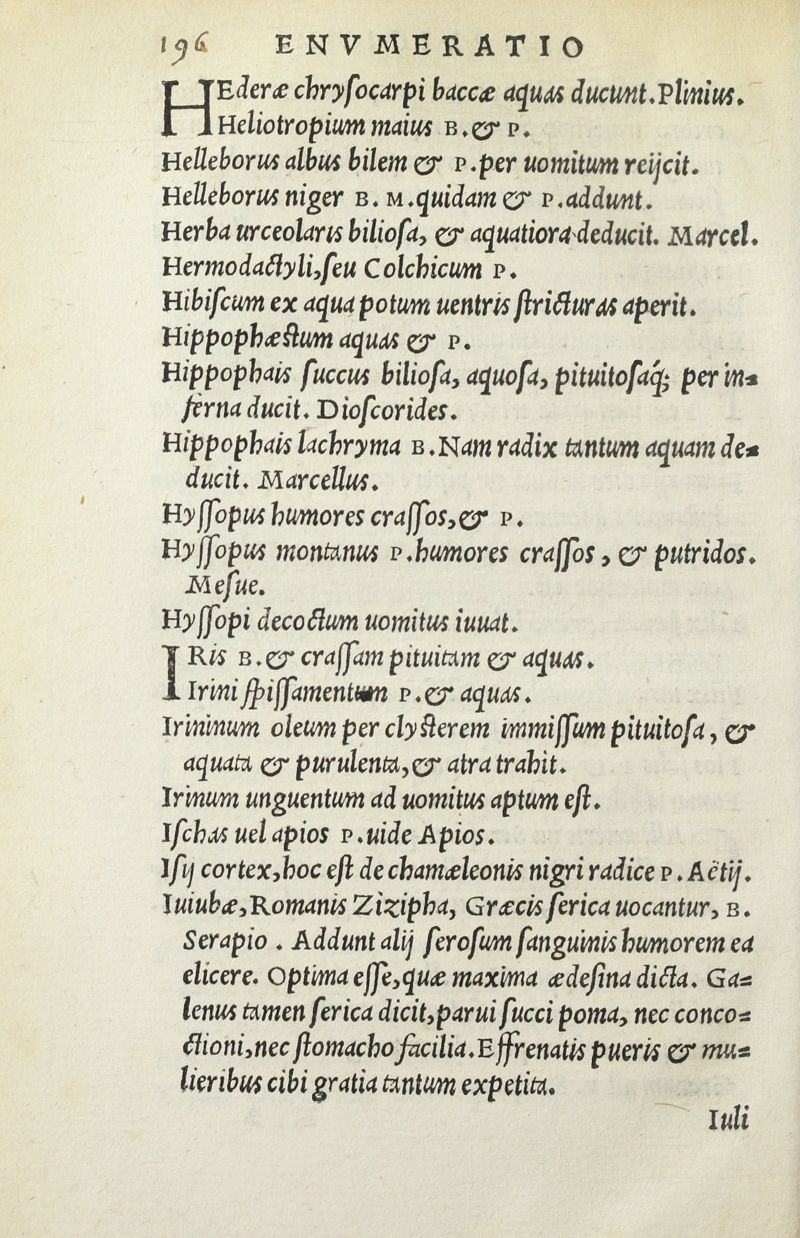 196 ENVMERATIO
HEderæ chryſocarpi baccæ aquas ducunt. Plinius.
Heliotropium maius B. & P.
Helleborus albus bilem & P. per uomitum reijcit.
Helleborus niger B. M. quidam & P. addunt.
Herba urceolaris bilioſa, & aquatiora deducit. Marcel.
Hermodactyli, ſeu Colchicum P.
Hibiſcum ex aqua potum uentris ſtricturas aperit.
Hippophæſtum aquas & P.
Hippophais ſuccus bilioſa, aquoſa, pituitoſaq́; per in-
ferna ducit. Dioſcorides.
Hippophais lachryma B. Nam radix tantum aquam de-
ducit. Marcellus.
Hyſſopus humores craſſos, & P.
Hyſſopus montanus P. humores craſſos, & putridos.
Meſue.
Hyſſopi decoctum uomitus iuuat.
IRis B. & craſſam pituitam & aquas.
Irini ſpiſſamentum P. & aquas.
Irininum oleum per clyſterem immiſſum pituitoſa, &
aquata & purulenta, & atra trahit.
Irinum unguentum ad uomitus aptum eſt.
Iſchas uel apios P. uide Apios.
Iſij cortex, hoc eſt de chamæleonis nigri radice P. Aëtij.
Iuiubæ, Romanis Zizipha, Græcis ſerica uocantur, B.
Serapio. Addunt alij ſeroſum ſanguinis humorem ea
elicere. Optima eſſe, quæ maxima ædeſina dicta. Ga-
lenus tamen ſerica dicit, parui ſucci poma, nec conco-
ctioni, nec ſtomacho facilia. Effrenatis pueris & mu-
lieribus cibi gratia tantum expetita.
Iuli